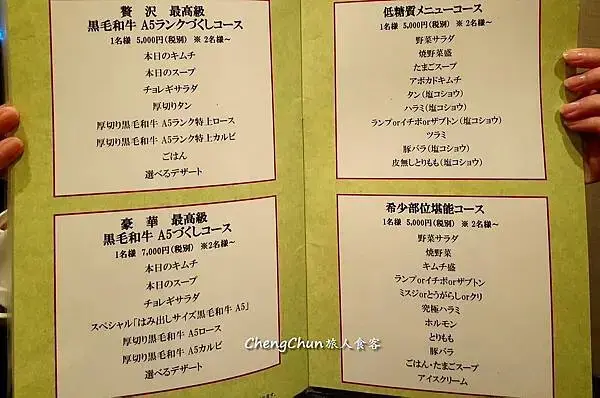 贅沢 最高級
黒毛和牛 A5ランクづくしコース
1名様 5,000円(税別) ※2名様~
本日のキムチ
本日のスープ
チョレギサラダ
厚切りタン
厚切り黒毛和牛 A5ランク特上ロース
厚切り黒毛和牛 A5ランク特上カルビ
ごはん
選べるデザート
豪華 最高級
黒毛和牛 A5づくしコース
1名様 7,000円(税別) ※2名様~
本日のキムチ
本日のスープ
チョレギサラダ
スペシャル「はみ出しサイズ黒毛和牛 A5」
厚切り黒毛和牛 A5ロース
厚切り黒毛和牛 A5カルビ
選べるデザート
低糖質メニューコース
1名様 5,000円(税別) ※2名様~
野菜サラダ
焼野菜盛
たまごスープ
アボカドキムチ
タン(塩コショウ)
ハラミ(塩コショウ)
ランプorイチボorザブトン(塩コショウ)
ツラミ
豚バラ(塩コショウ)
皮無しとりもも(塩コショウ)
希少部位堪能コース
1名様 5,000円(税別) ※2名様~
野菜サラダ
焼野菜
キムチ盛
ランプorイチボorザブトン
ミスジorとうがらしorクリ
究極ハラミ
ホルモン
とりもも
豚バラ
ごはん・たまごスープ
アイスクリーム
ChengChun旅人食客